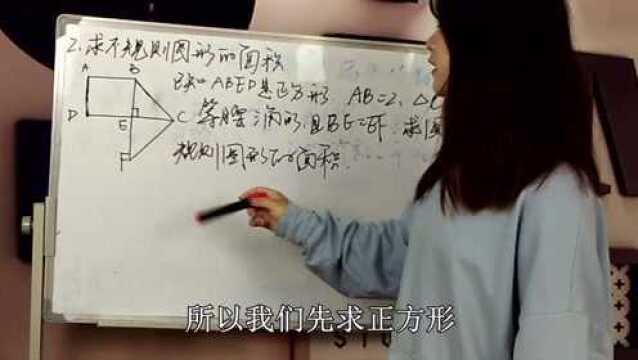 2. 求不规则图形的面积
A B
已知 ABED是正方形 AB=2, △
D E C 等腰三角形, 且BE=EF, 求
F 规则图形的面积.
所以我们先求正方形